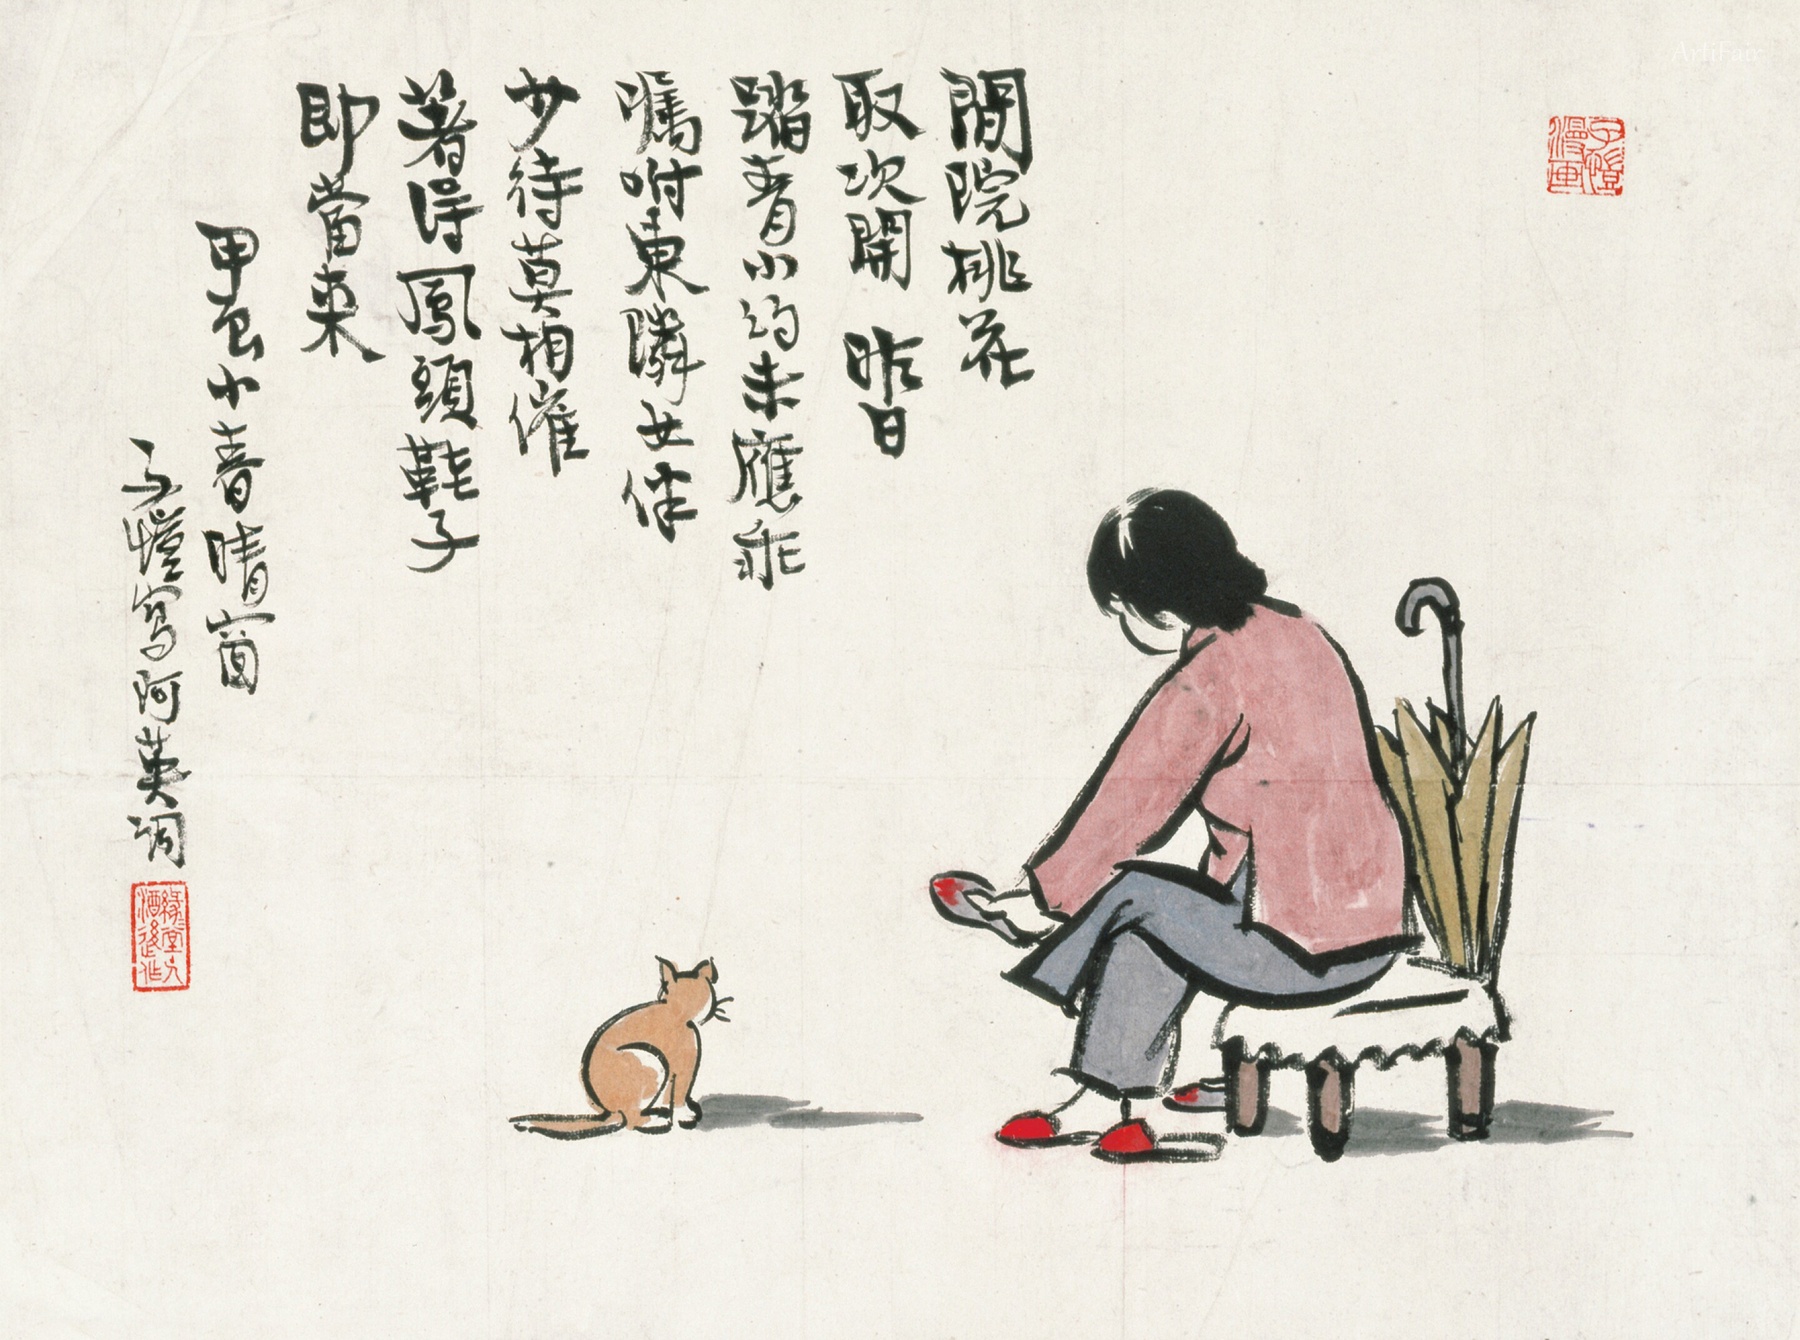 閒院桃花
取次開 昨日
踏青小約未應乖
囑咐東隣女伴
少待莫相催
著得鳳頭鞋子
即當來
甲申小春晴窗
子愷寫阿英詞
子愷漫画
緣緣堂主人酒後作
ArtiFair